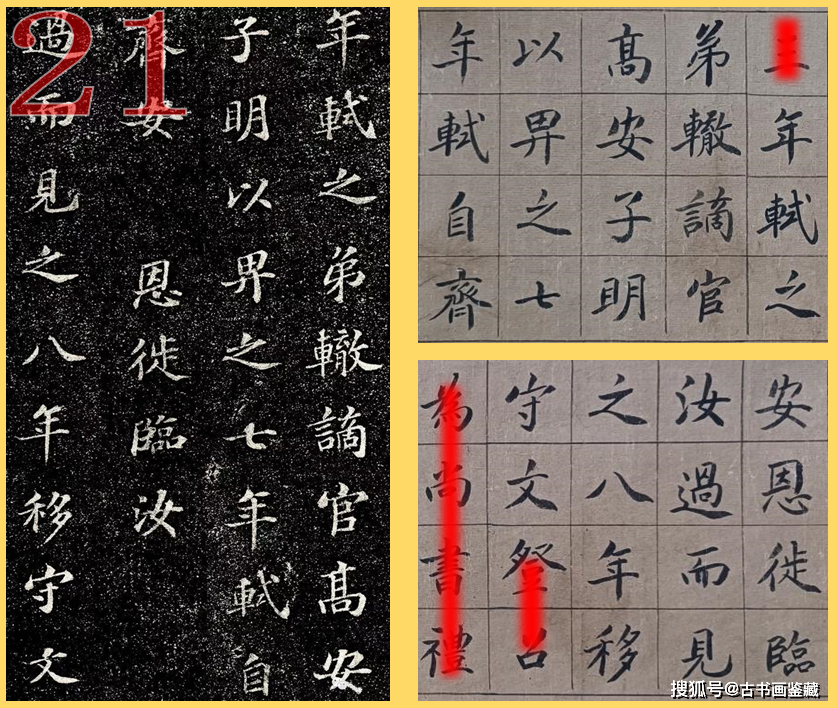 21
年軾之弟轍謫官髙安
子明以畀之七年軾自
齊安 恩徙臨汝
過而見之八年移守文
三年軾之
弟轍謫官
髙安子明
以畀之七
年軾自齊
安恩徙臨
汝過而見
之八年移
守文登召
為尚書禮
搜狐号@古书画鉴藏